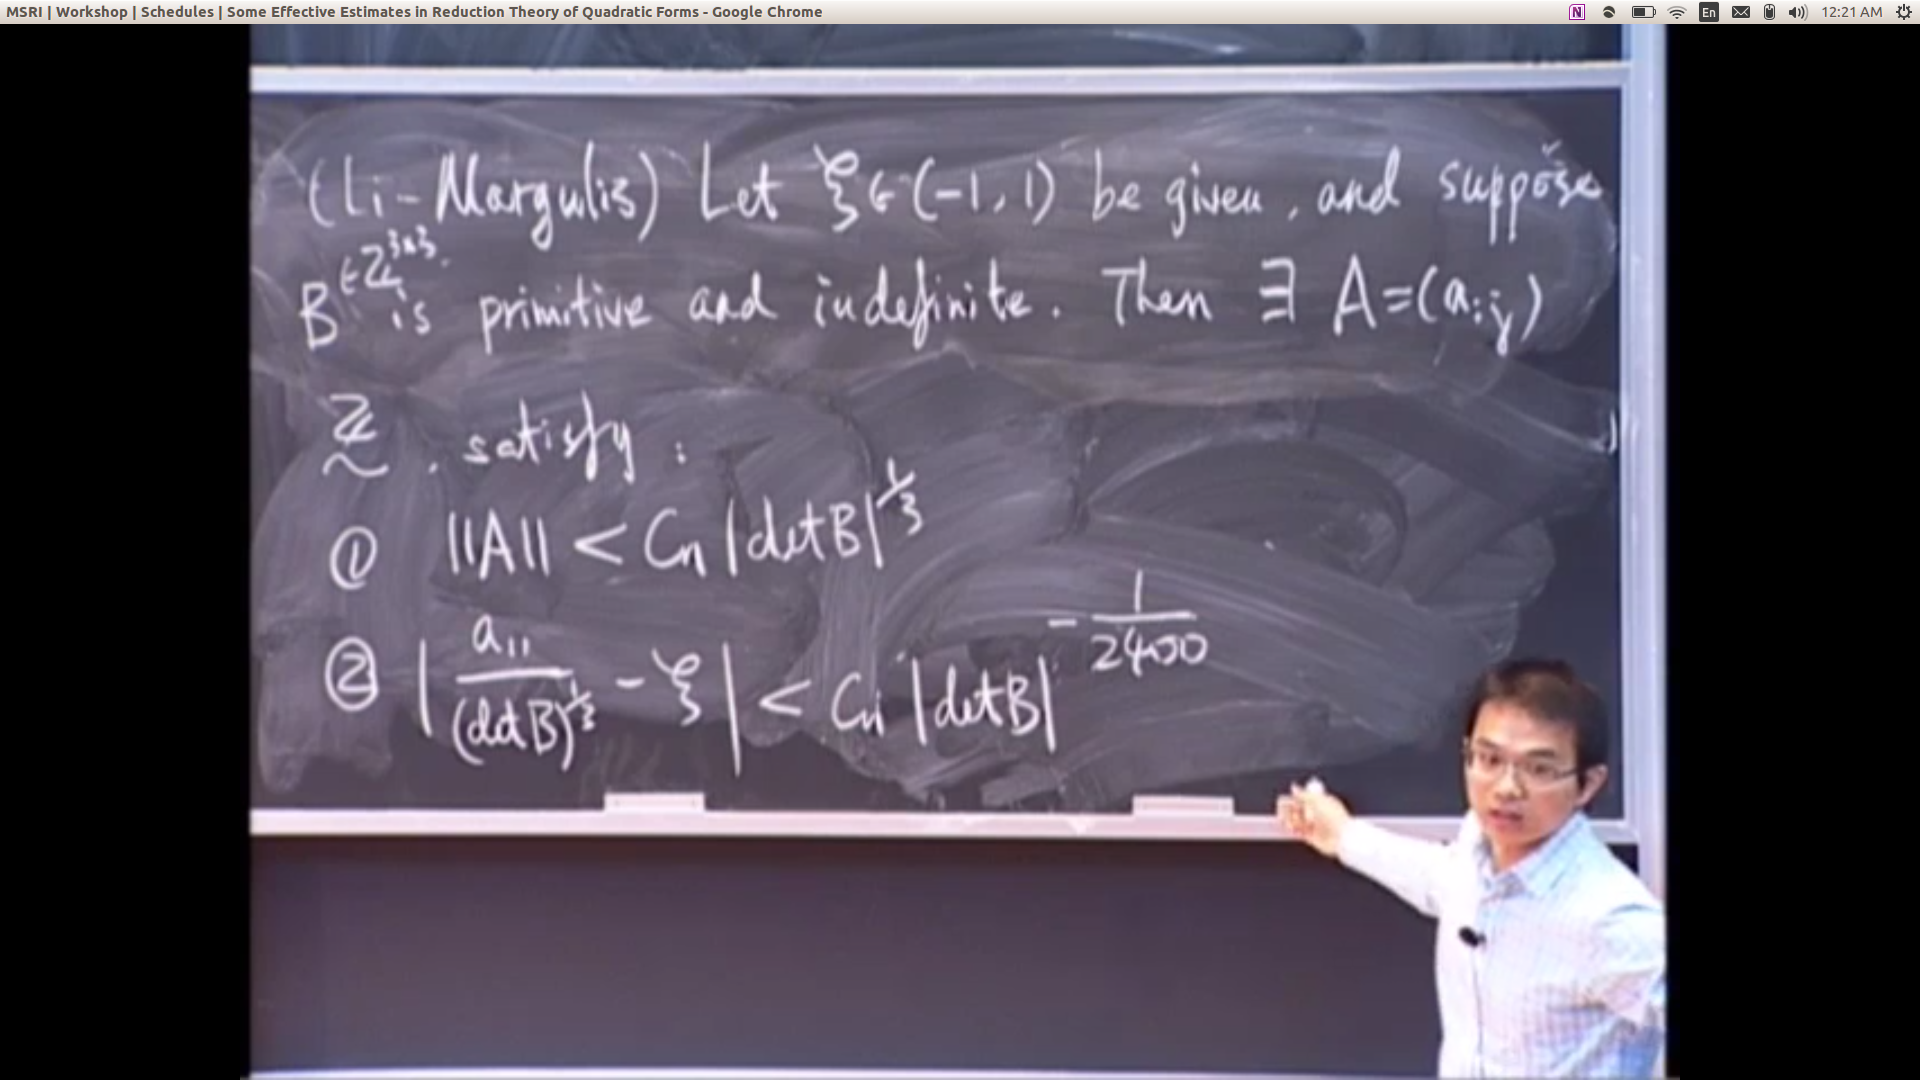 MSRI | Workshop | Schedules | Some Effective Estimates in Reduction Theory of Quadratic Forms - Google Chrome
N En 12:21 AM
(Li-Margulis) Let ξ∈(-1,1) be given, and suppose
B ∈ℤ^{3x3} is primitive and indefinite. Then ∃ A=(a_{ij})
ℤ ~ . satisfy :
① ||A|| < Cn |det B|^{1/3}
② | a_{11} / (det B)^{1/3} - ξ | < Cn |det B|^{-1/2400}